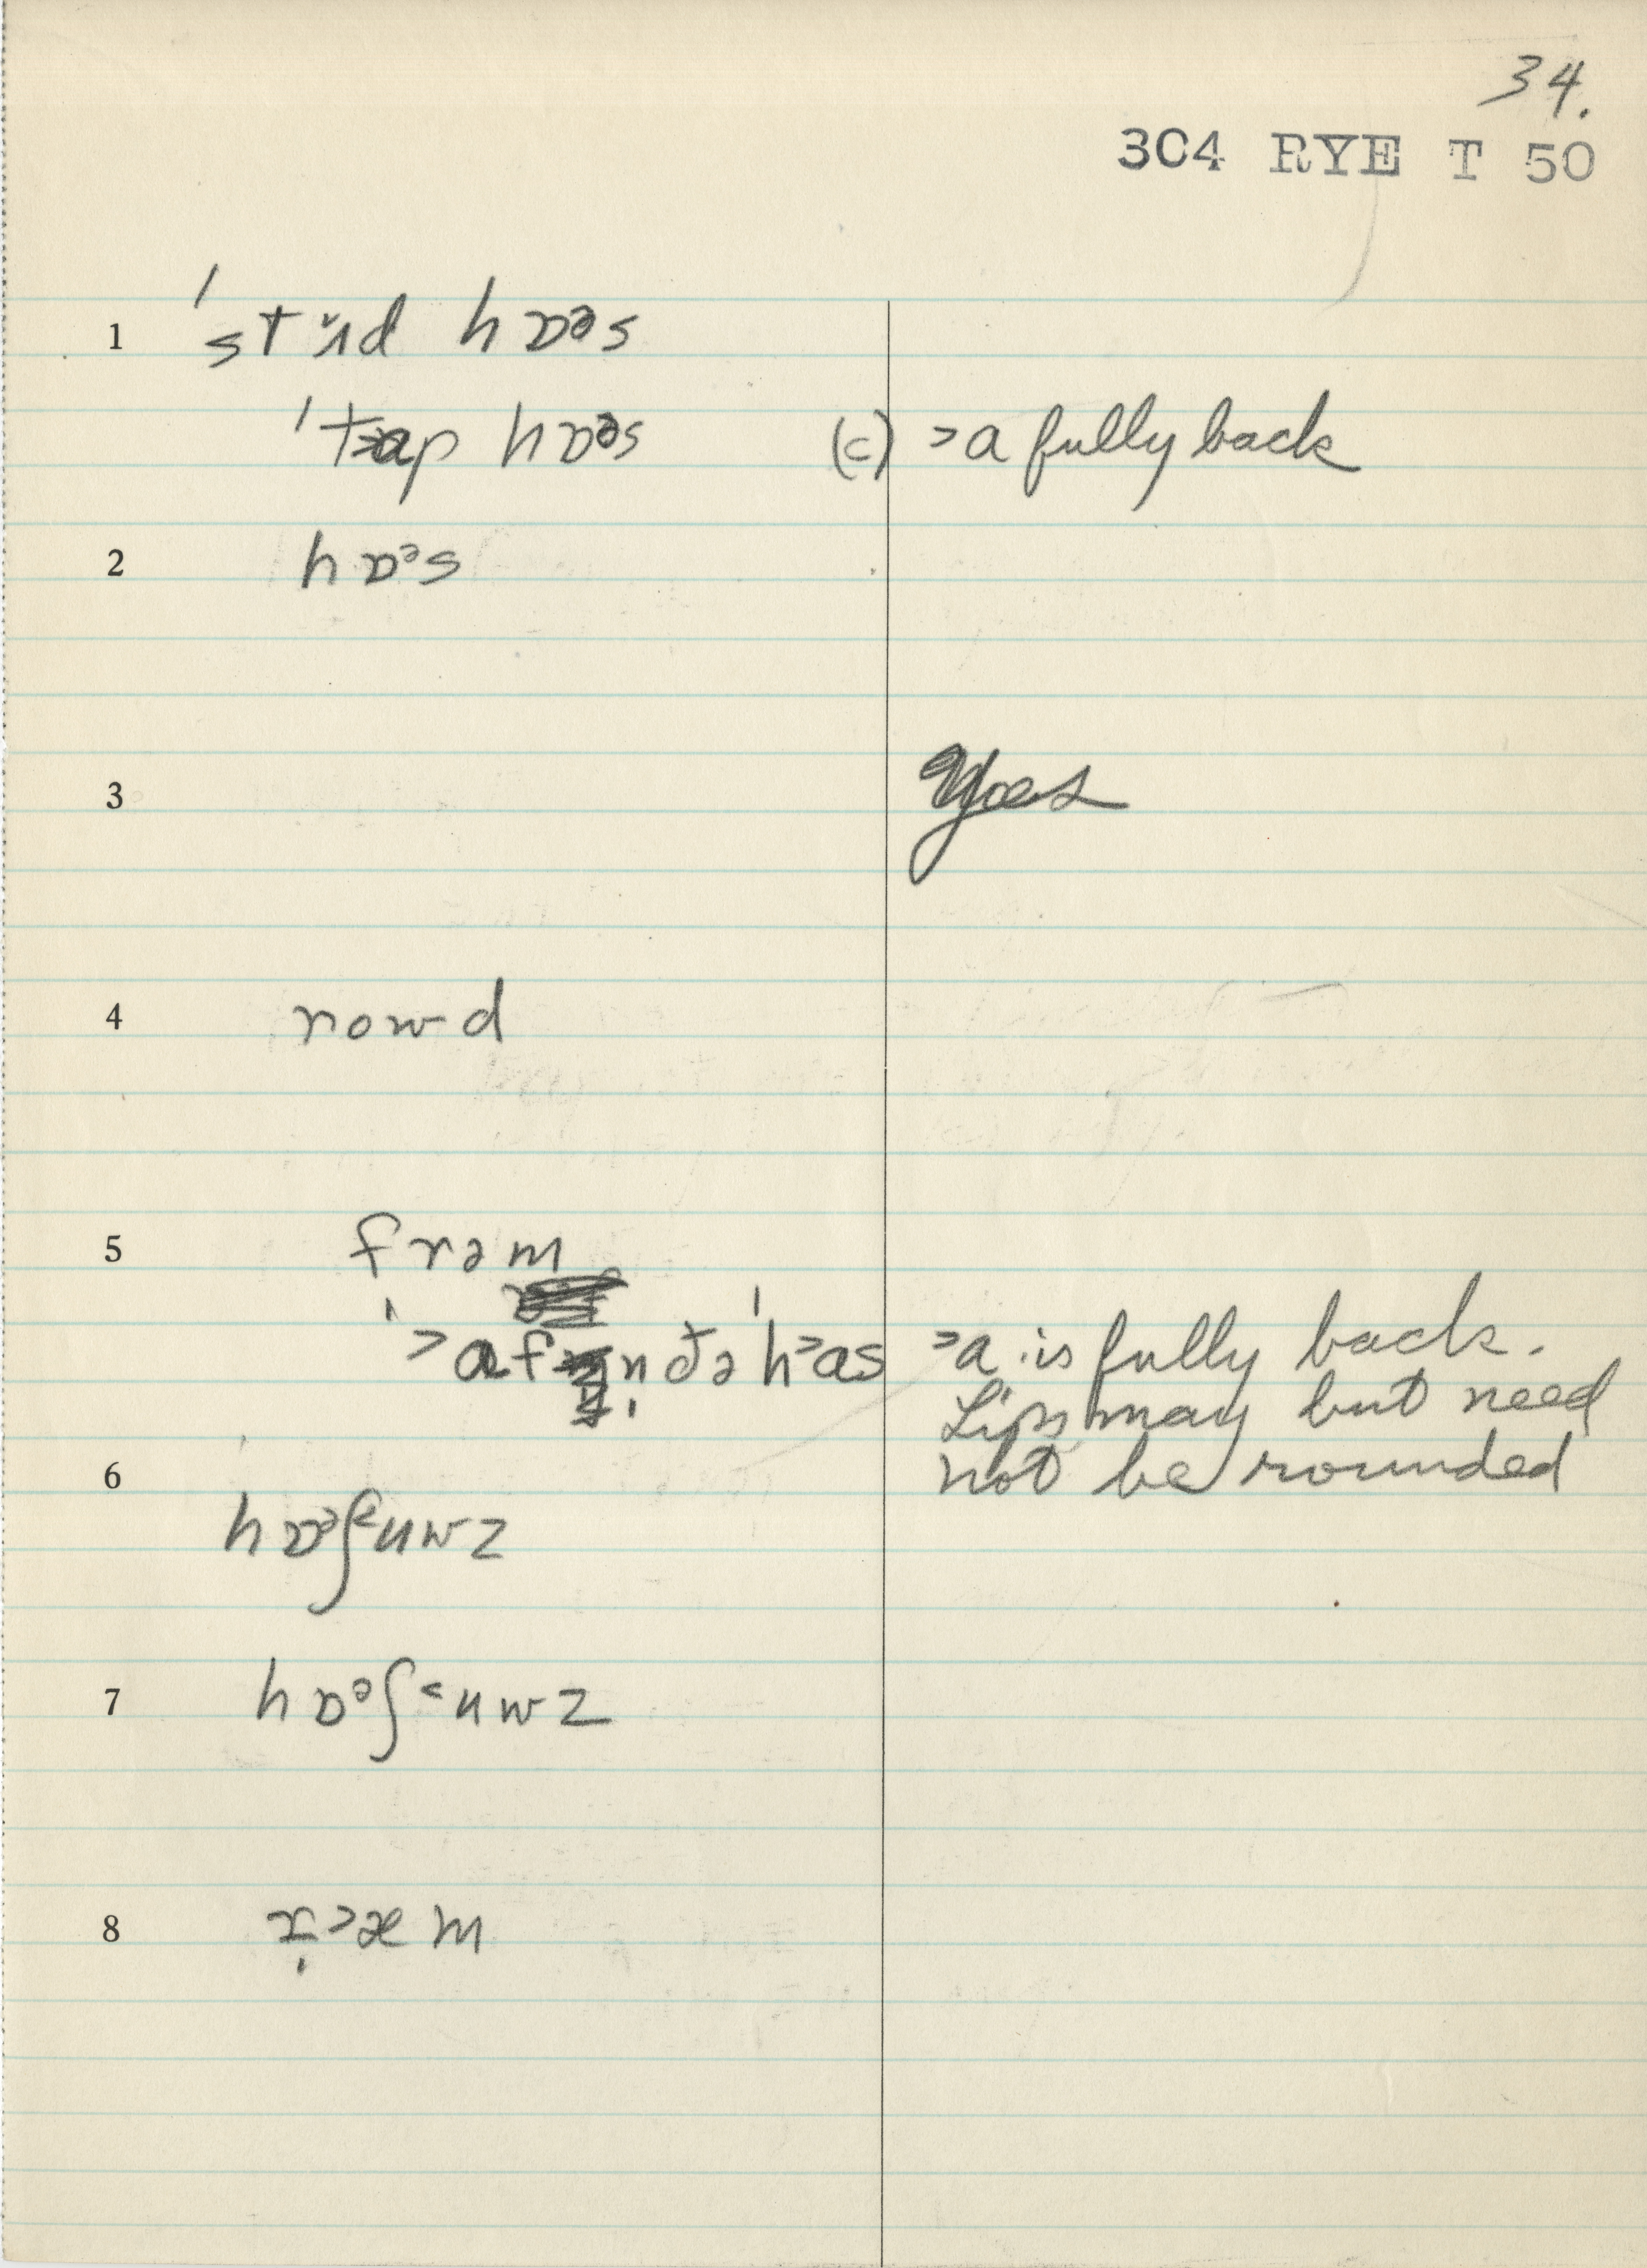 34.
304 RYE T 50
1 ˈstʌd hɒəs
ˈt>ap hɒəs (c) >a fully back
2 hɒᵊs
3 Yoes
4 rowd
5 frəm
ˈ>af n ðə ˈh>as >a is fully back.
Lips may but need
not be rounded
6 hɒᵊʃ<uwz
7 hɒᵊʃ<uwz
8 >æm